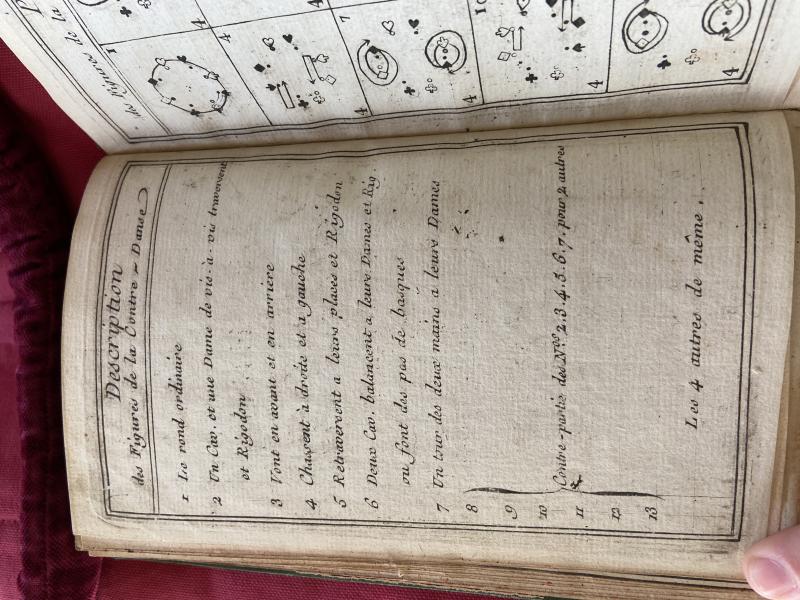 Description
des Figures de la Contre-Danse
1 Le rond ordinaire
2 Un Cav. et une Dame de vis-à-vis traversent
et Rigodon
3 Vont en avant et en arriere
4 Chassent à droite et a gauche
5 Retraversent a leurs places et Rigodon
6 Deux Cav. balancent a leurs Dames et Rig.
ou font des pas de basques
7 Un tour des deux mains a leurs Dames
8
9
10
Contre-partie des Nos. 2.3.4.5.6.7. pour 2 autres
11
12
13
Les 4 autres de même.
des Figures de la
1
4
4
4
7
4
10
4
4